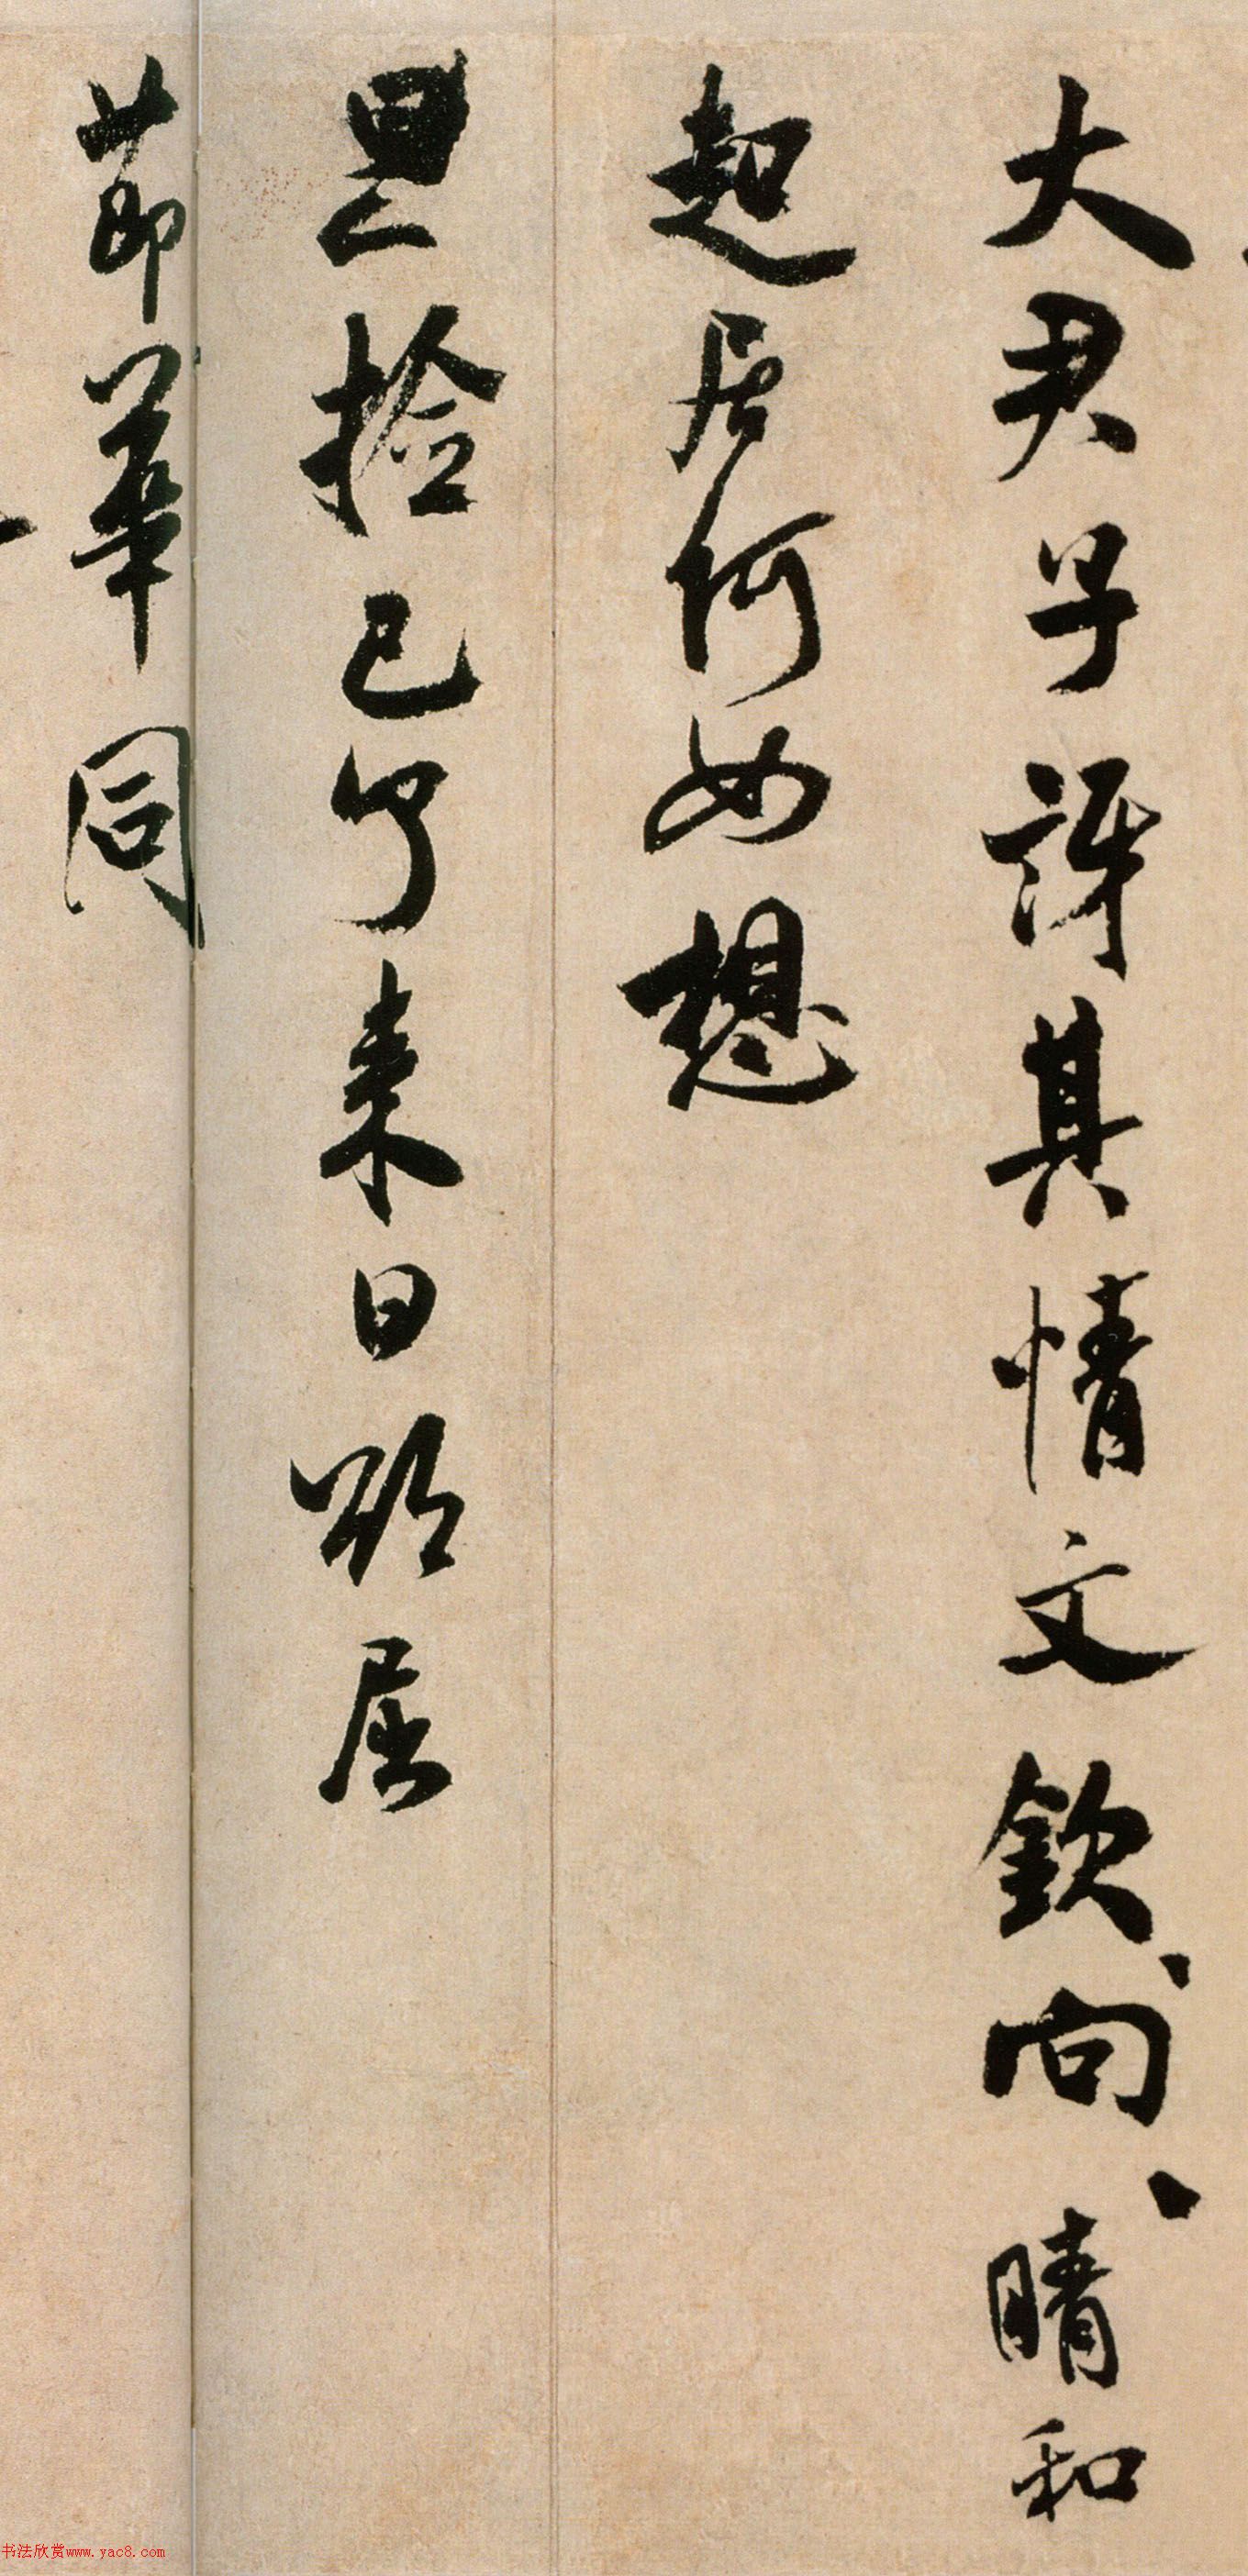 大君子訝其情文欽、向、晴和
起居何如想
撿已了來日欲屈
節華同
书法欣赏www.yac8.com